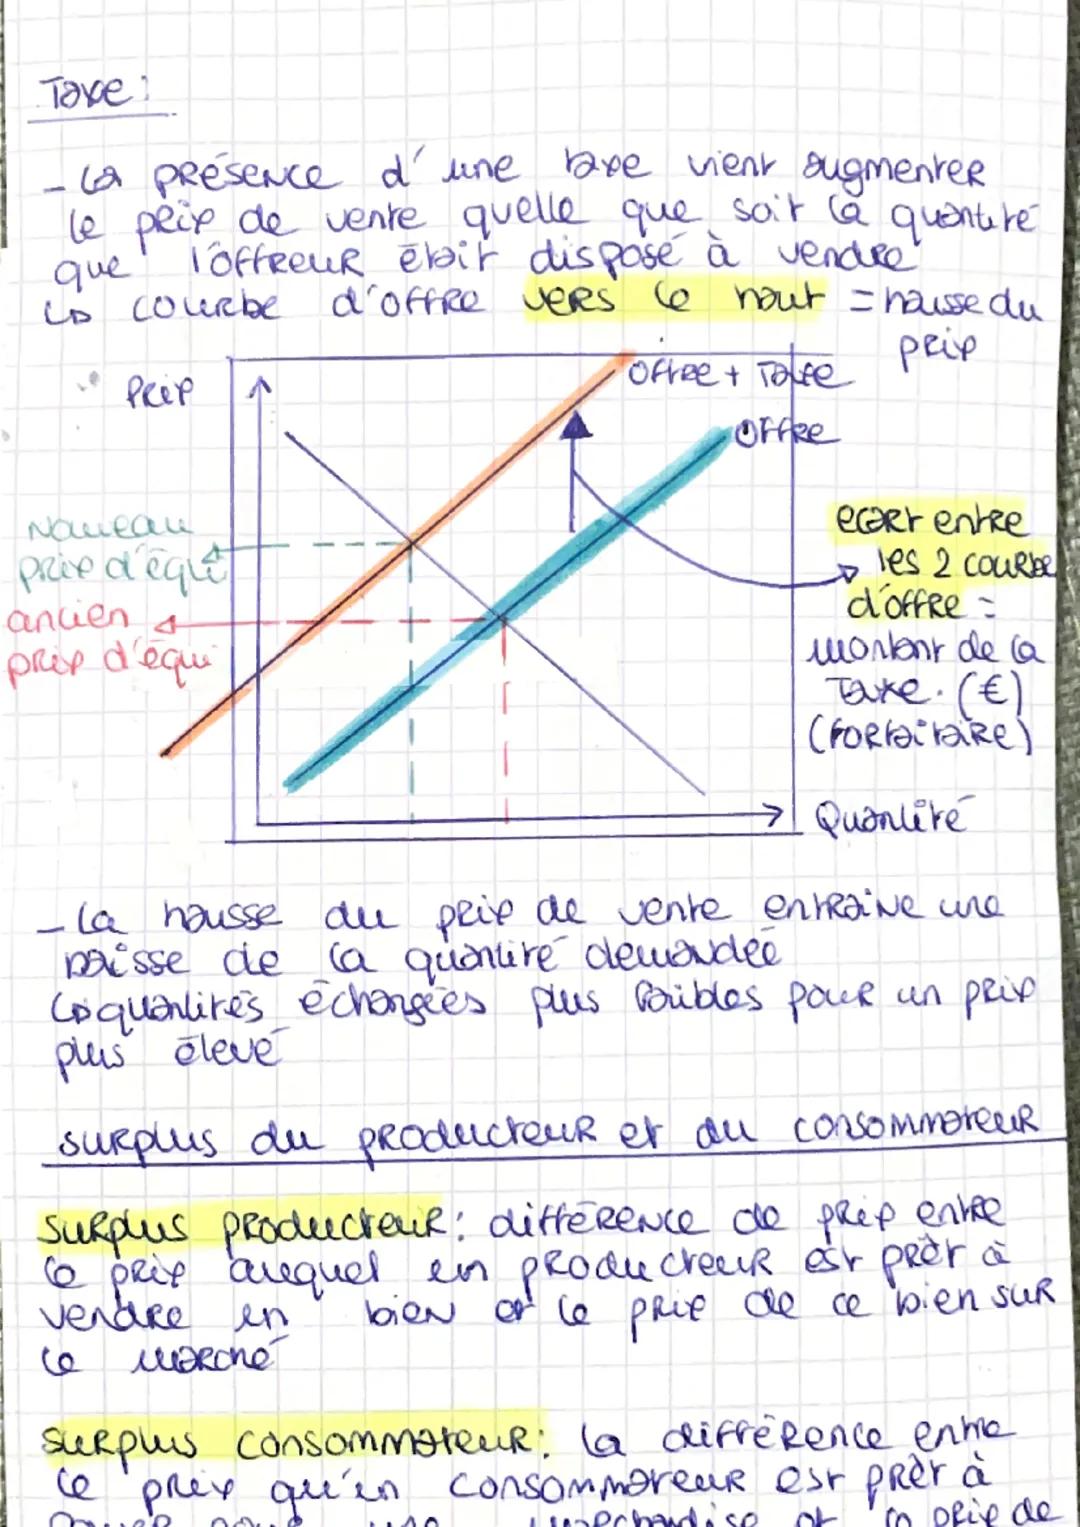 Taxe :
- La présence d'une taxe vient augmenter
le prix de vente quelle que soit la quantité
que l'offreur était disposé à vendre
↳ courbe d'offre vers le haut = hausse du
prix
Prix
Offre + Taxe
Offre
Nouveau
prix d'équi
ancien
prix d'équi
ecart entre
les 2 courbe
d'offre =
montant de la
Taxe. (€)
(forfaitaire)
Quantité
- La hausse du prix de vente entraine une
baisse de la quantité demandée
↳ quantités échangées plus faibles pour un prix
plus élevé
surplus du producteur et du consommateur
surplus producteur : différence de prix entre
le prix auquel un producteur est prêt à
vendre un bien et le prix de ce bien sur
le marché
surplus consommateur : la différence entre
le prix qu'un consommateur est prêt à
payer pour une marchandise et le prix de